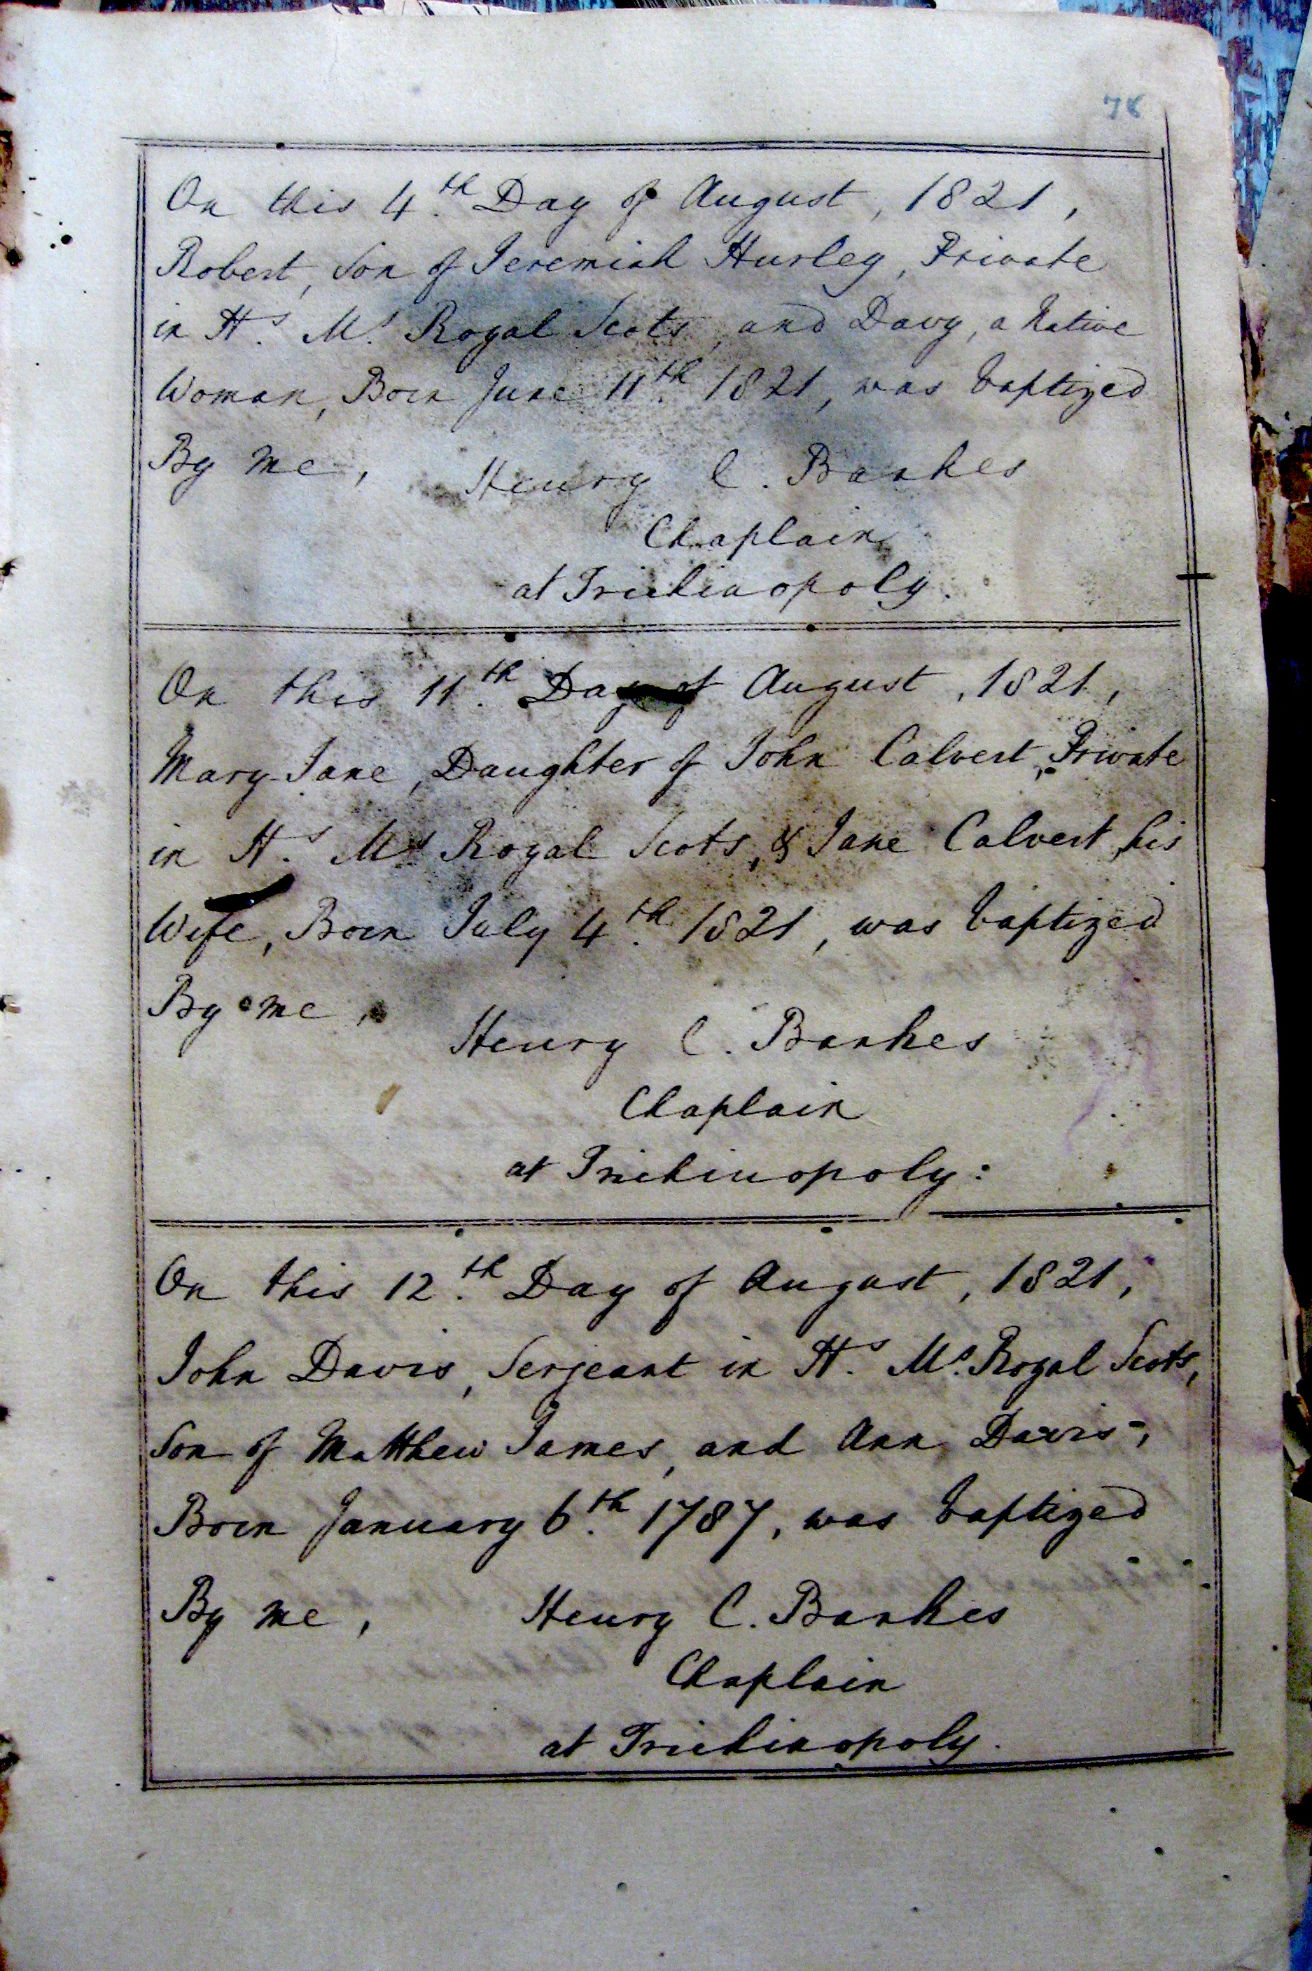 78
On this 4th Day of August, 1821,
Robert, Son of Jeremiah Hurley, Private
in H.s M.s Royal Scots, and Davy, a Native
Woman, Born June 11th 1821, was baptized
By me, Henry C. Bankes
Chaplain
at Trichinopoly.
On this 11th Day of August, 1821,
Mary Jane, Daughter of John Calvert, Private
in H.s M.s Royal Scots, & Jane Calvert, his
Wife, Born July 4th 1821, was baptized
By me,
Henry C. Bankes
Chaplain
at Trichinopoly:
On this 12th Day of August, 1821,
John Davis, Serjeant in H.s M.s Royal Scots,
Son of Matthew James, and Ann Davis,
Born January 6th 1787, was baptized
By me, Henry C. Bankes
Chaplain
at Trichinopoly.